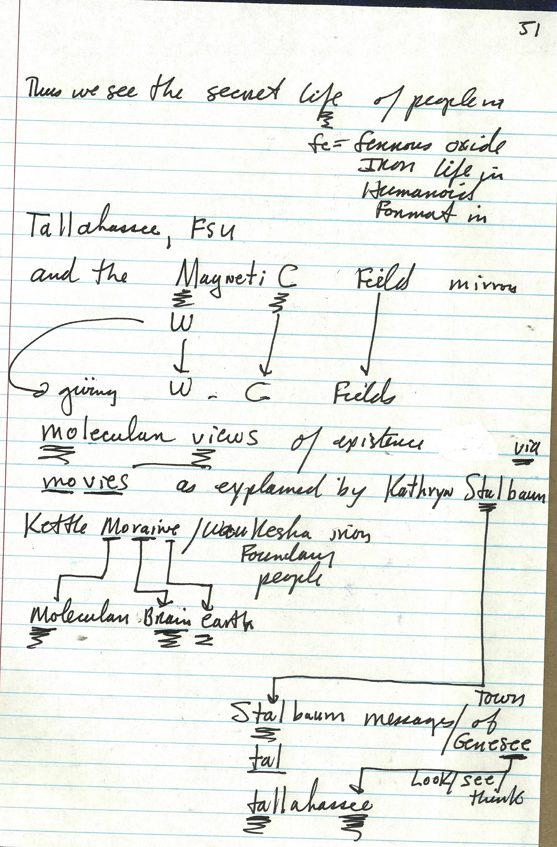 51
Thus we see the secret life of people in
fe = ferrous oxide
Iron life in
Humanoid
Format in
Tallahassee, FSU
and the MagnetiC Field mirror
W
giving W. C Fields
molecular views of existence via
movies as explained by Kathryn Stalbaum
Kettle Moraine / Waukesha iron
Foundary
people
Molecular Brain earth
Town
Stalbaum messages / of
Genesee
tal
Look / see /
think
tallahassee